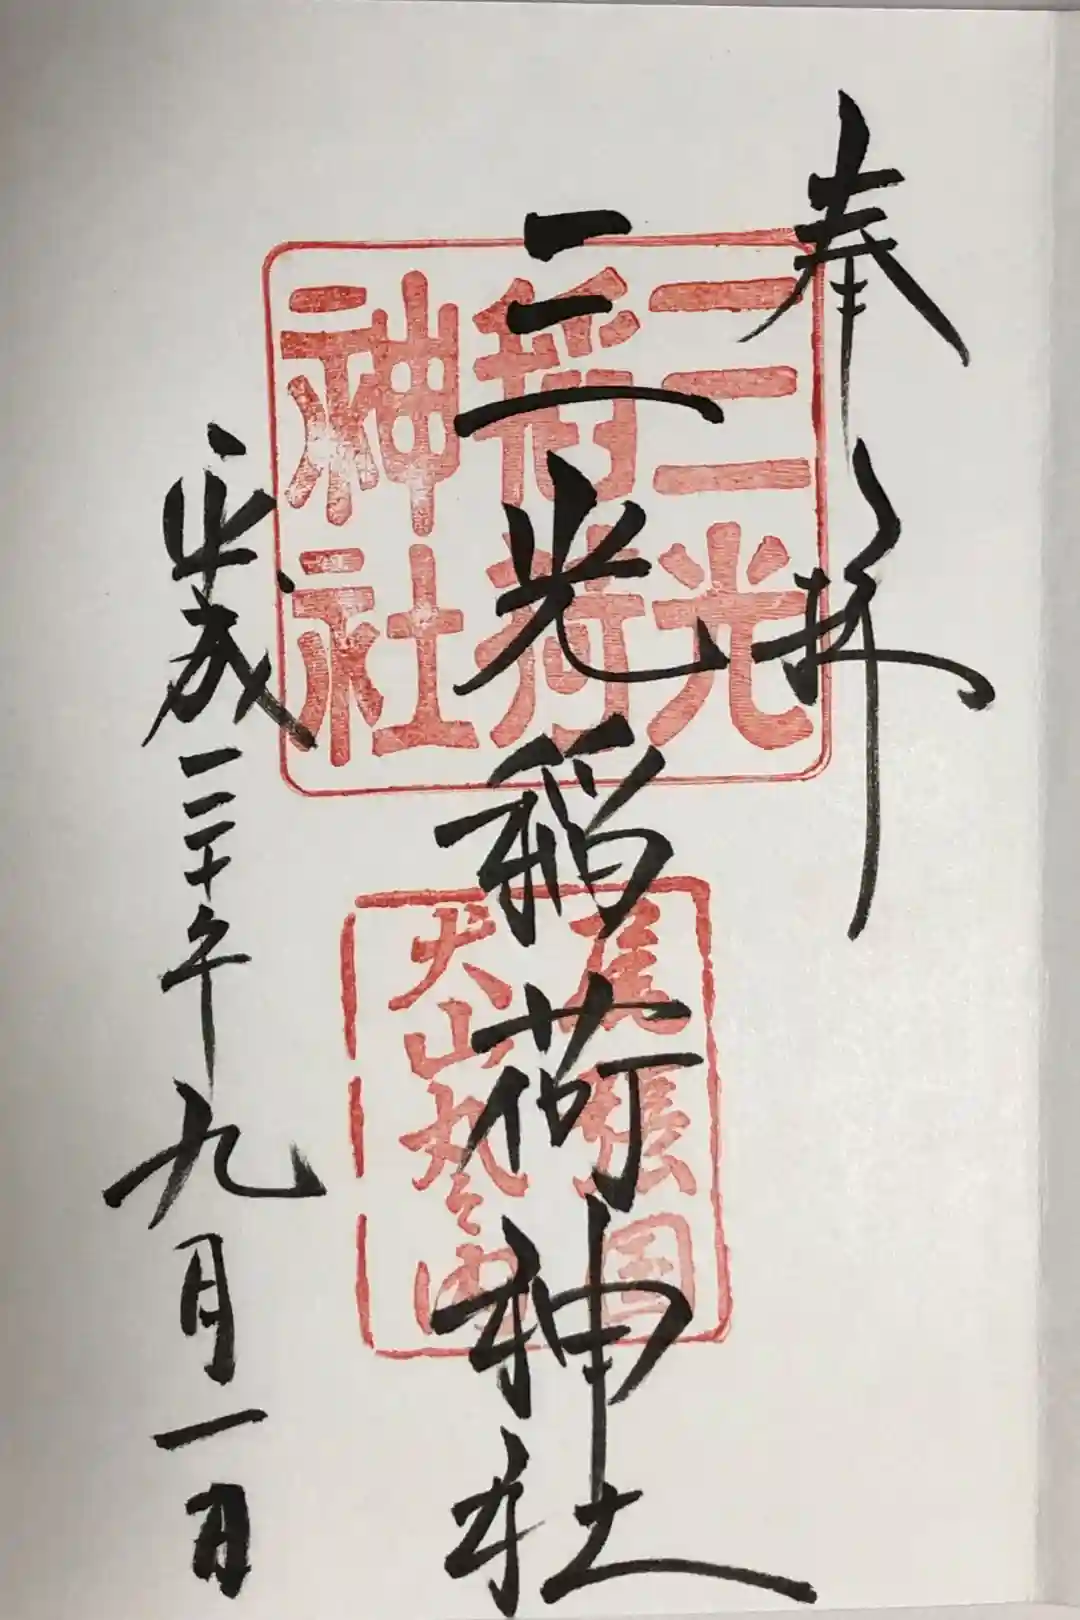 奉拝
三光稲荷神社
平成三十年九月一日
三光
稲荷
神社
尾張国
犬山丸之内